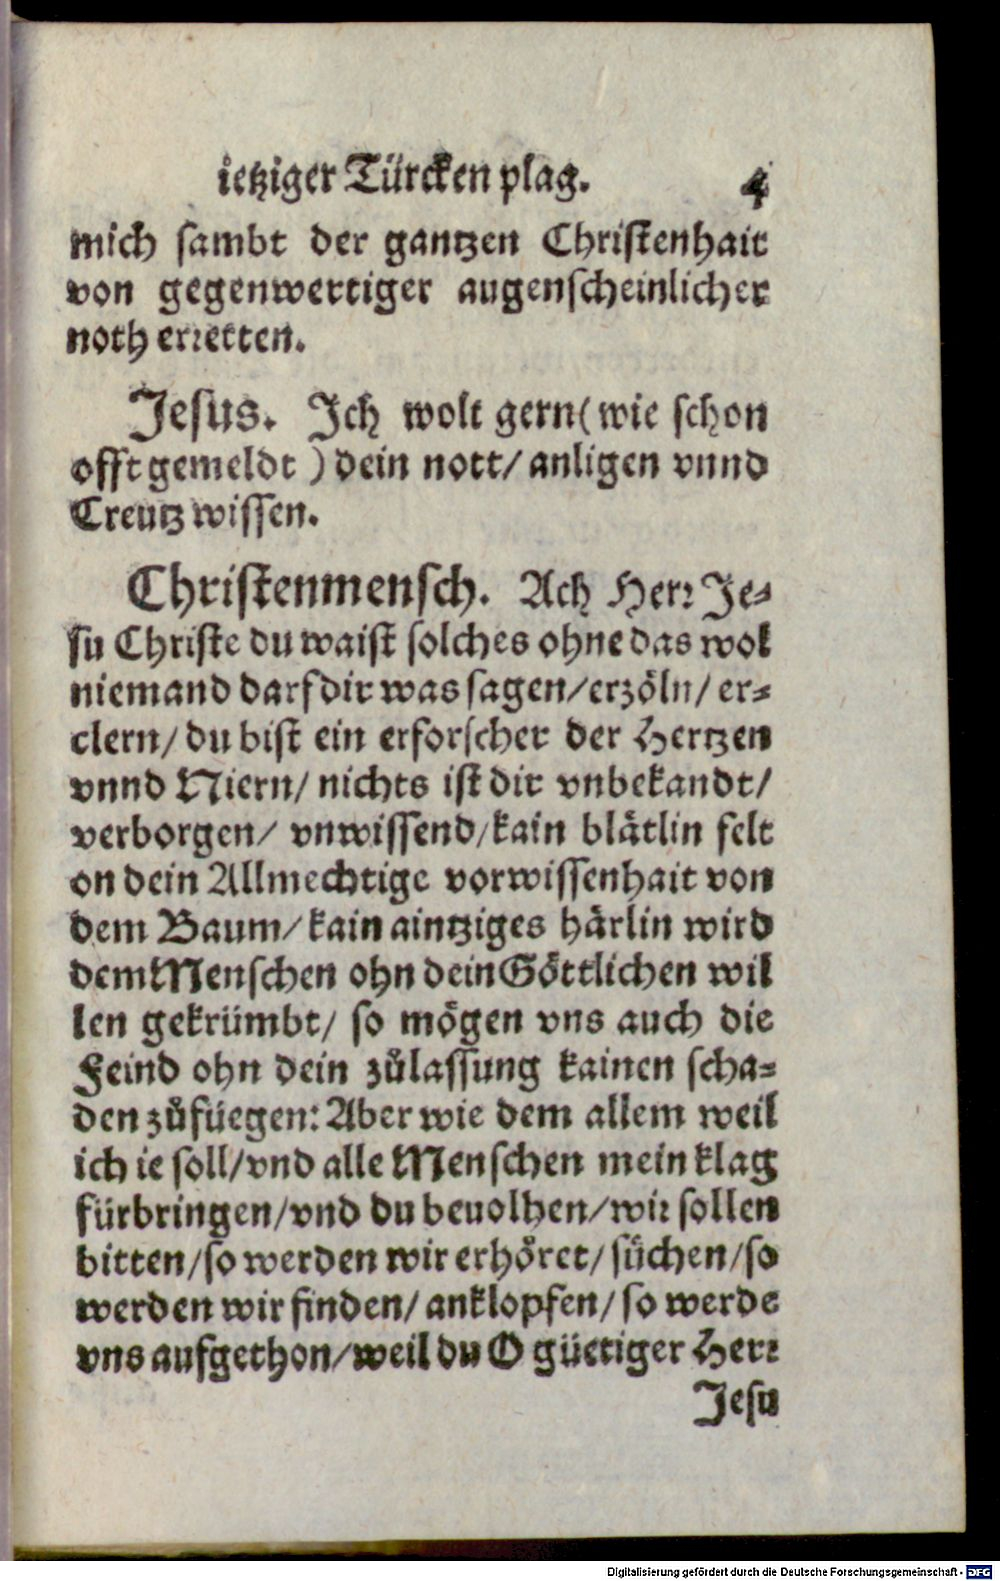 ietziger Türcken plag. 4
mich sambt der gantzen Christenhait
von gegenwertiger augenscheinlicher
noth erretten.
Jesus. Ich wolt gern (wie schon
offt gemeldt) dein nott/ anligen vnnd
Creutz wissen.
Christenmensch. Ach Herr Je-
su Christe du waist solches ohne das wol
niemand darf dir was sagen/ erzöln/ er-
clern/ du bist ein erforscher der Hertzen
vnnd Niern/ nichts ist dir vnbekandt/
verborgen/ vnwissend/ kain blätlin felt
on dein Allmechtige vorwissenhait von
dem Baum/ kain aintziges härlin wird
dem Menschen ohn dein Göttlichen wil
len gekrümbt/ so mögen vns auch die
Feind ohn dein zůlassung kainen scha-
den zůfüegen: Aber wie dem allem weil
ich ie soll/ vnd alle Menschen mein klag
fürbringen/ vnd du beuolhen/ wir sollen
bitten/ so werden wir erhöret/ süchen/ so
werden wir finden/ anklopfen/ so werde
vns aufgethon/ weil du O güetiger Herr
Jesu
Digitalisierung gefördert durch die Deutsche Forschungsgemeinschaft - DFG